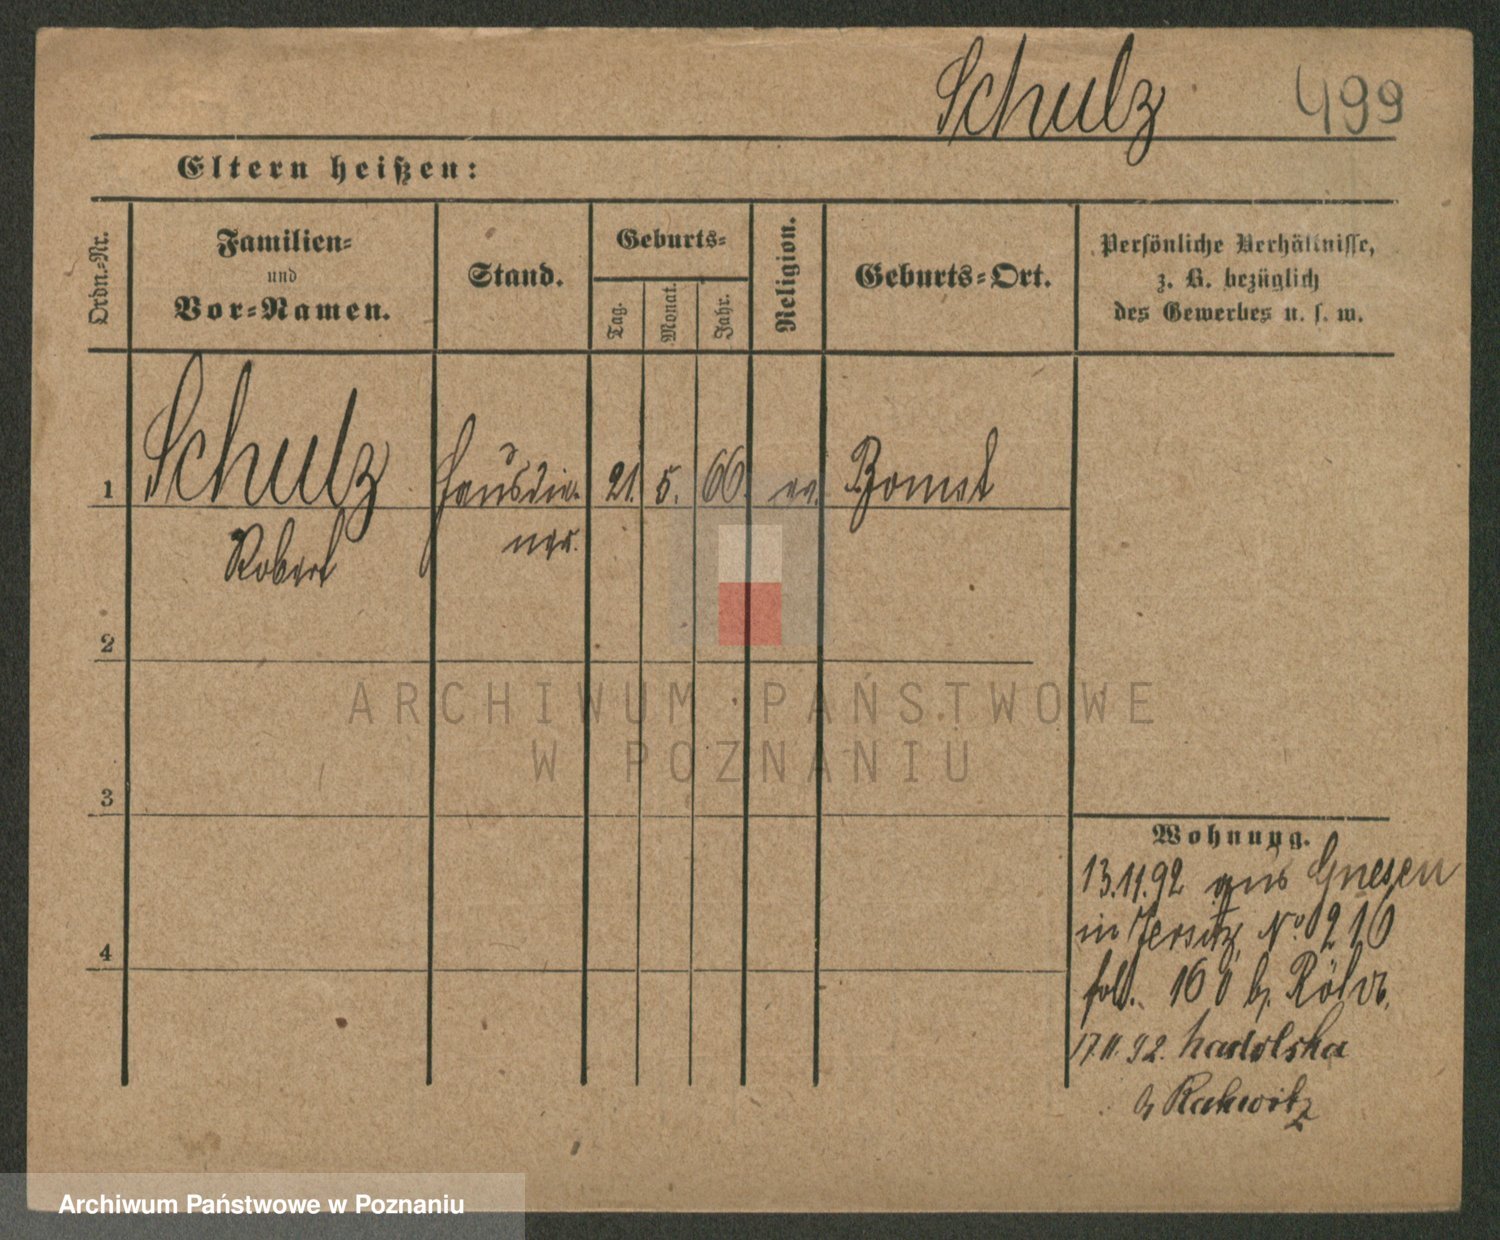 Schulz 499
Eltern heißen:
Ordn.-Nr.
Familien-
und
Vor-Namen.
Stand.
Geburts-
Tag.
Monat.
Jahr.
Religion.
Geburts-Ort.
Persönliche Verhältnisse,
z. B. bezüglich
des Gewerbes u. s. w.
1 Schulz Hausdie- 21. 5. 66. ev. Bomst
Robert ner.
2
ARCHIWUM PAŃSTWOWE
W POZNANIU
3
Wohnung.
13.11.92 aus Gnesen
in Jersitz No 210
fol. 160 b.
17.11.92.
b Rakwitz
4
Archiwum Państwowe w Poznaniu